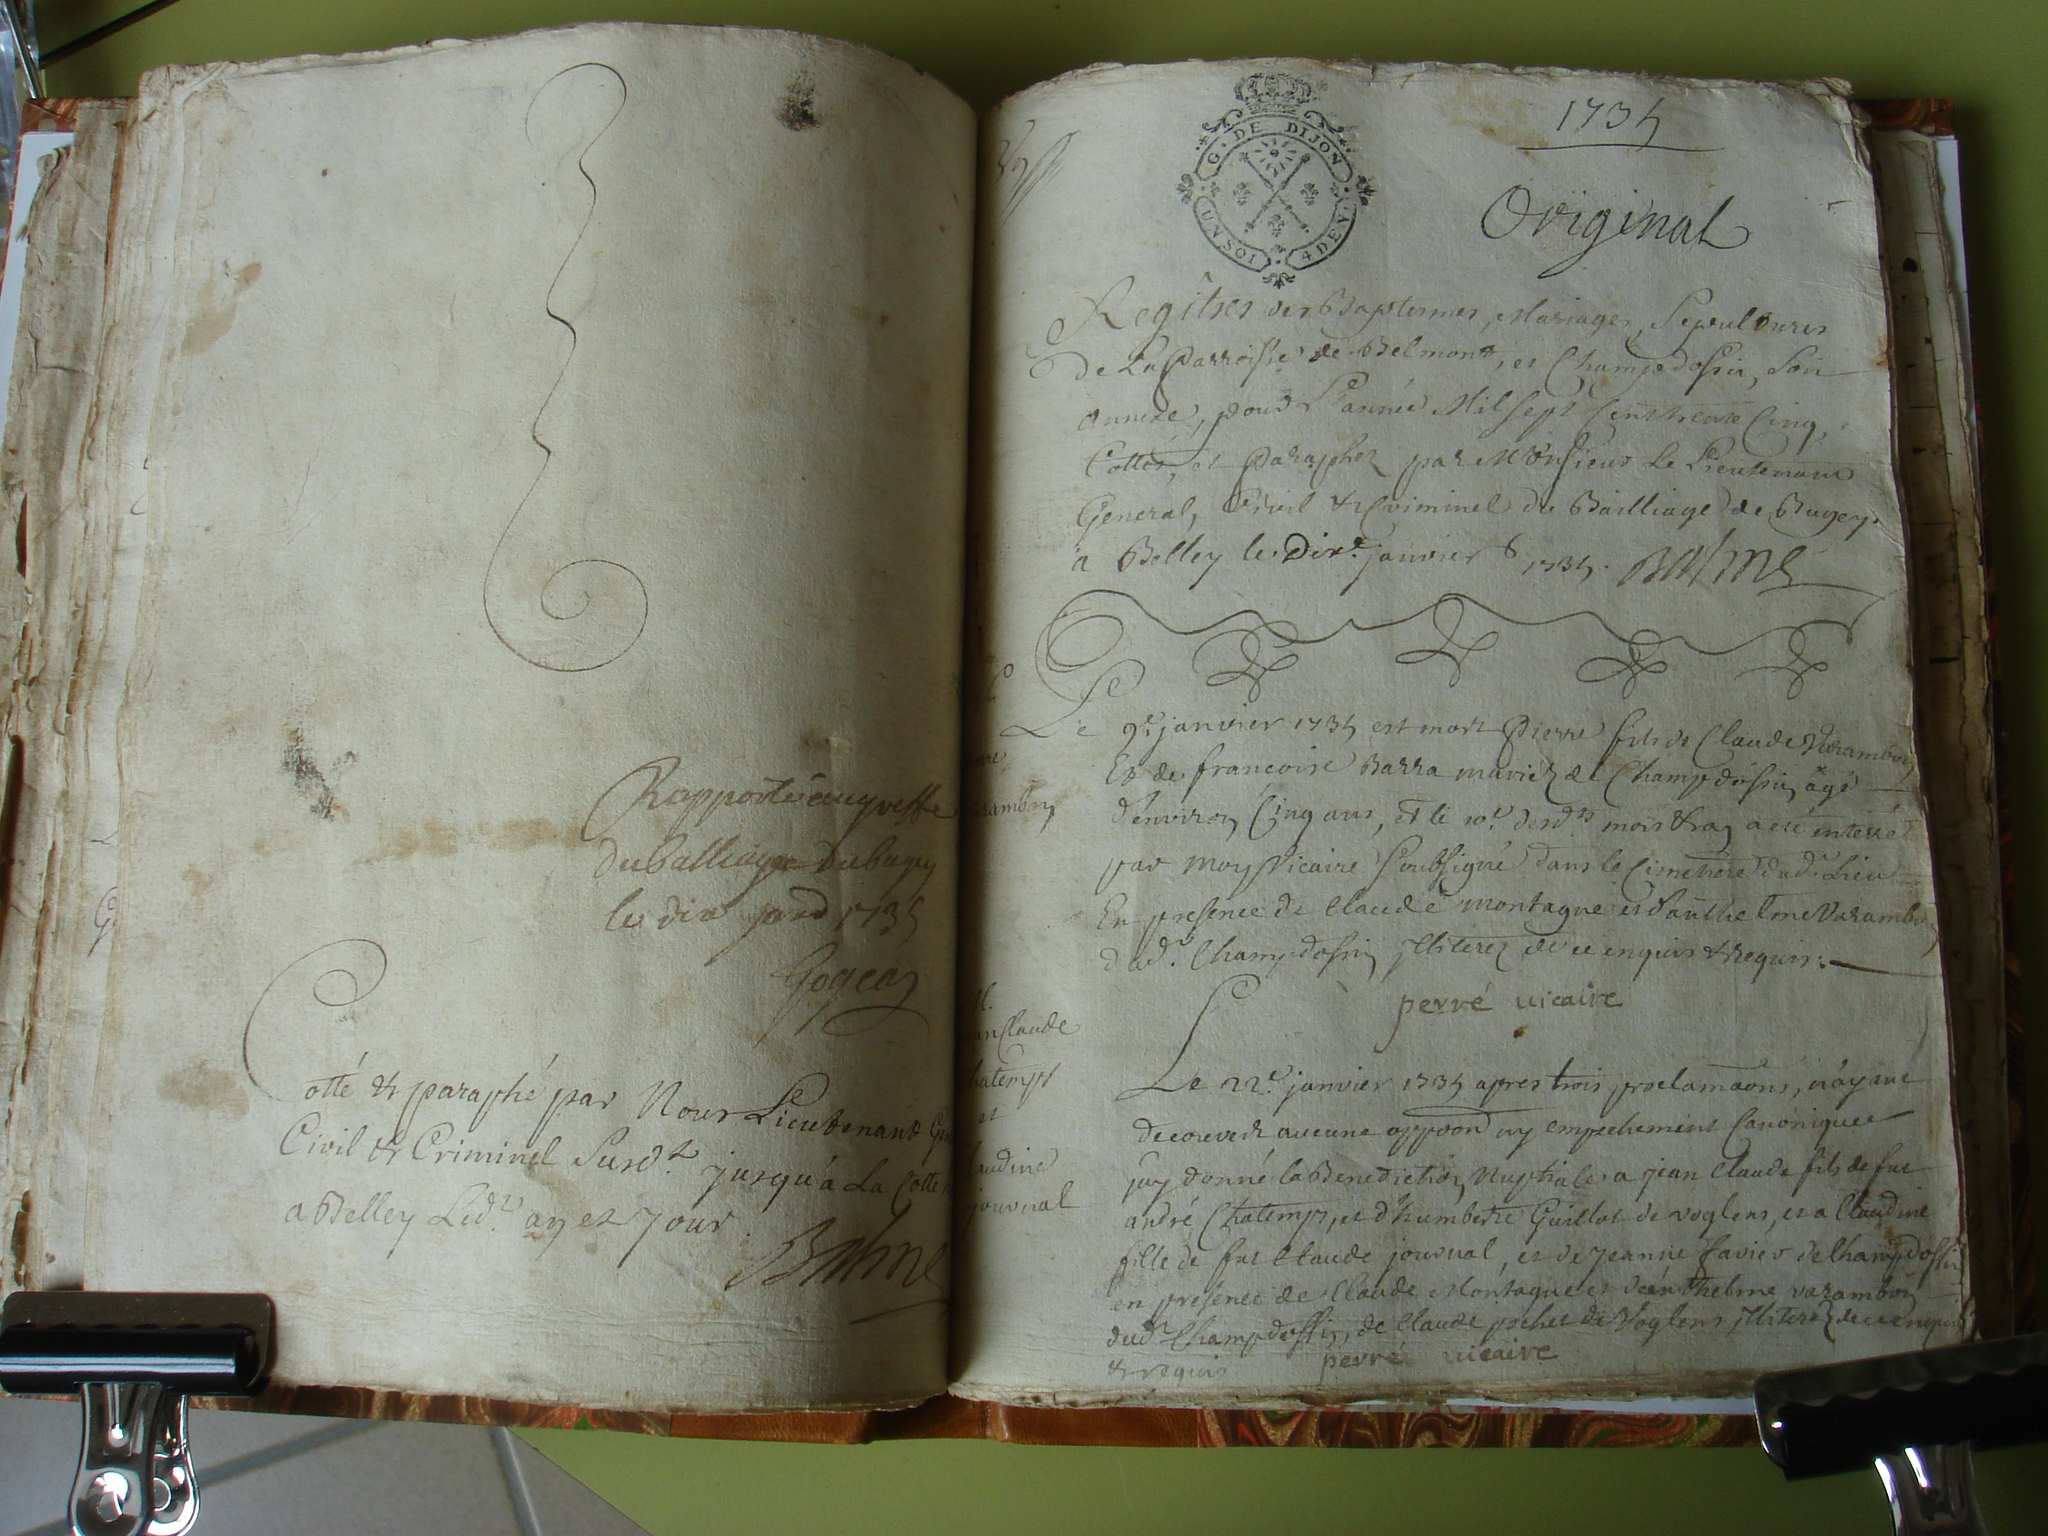 Rapporté au greffe
du balliage du bugey
le dix 1735
Cotté & paraphé par Nous Lieutenant
Civil & Criminel susd.t jusqu'à La Cotte
a Belley Led.t an et jour.
Balme
G. DE DIJON
UN SOL
4 DEN.
1735
Original
Regîtres des Baptesmes, Mariages, Sepultures
de La Parroisse de Belmont, et Champdossin, Son
annexe, pour L'année Mil sept Cent trente Cinq,
Cottés, et paraphez par Monsieur Le Lieutenant
General, Civil & Criminel du Bailliage de Bugey
a Belley le janvier 1735. Balme
Le 9.e janvier 1735 est mort Pierre fils de Claude Varambon
Et de francoise Barra mariez de Champdossin, agé
d'environ Cinq ans, et le 10.e desd.ts mois & an a été enterré
par moy Vicaire soubsigné dans le Cimetiere dud.t Lieu
En presence de Claude montagne et d'anthelme Varambon
dud.t Champdossin Illiterez de ce enquis & requis.
perré vicaire
anClaude
hatemps
et
laudine
journal
Le 22.e janvier 1735 apres trois proclamaons, n'ayant
decouvert aucune oppoon ny empechement Canonique
jay donné la Benediction Nuptiale a jean Claude fils de fut
andré Chatemps, et d'humberte Guillot de Voglens, et a Claudine
fille de fut Claude journal, et de jeanne favier de Champdossin
en presence de Claude Montagne et d'anthelme varambon
dud.t Champdossin, de Claude pochet de Voglens Illiterez de ce enquis
& requis perré vicaire